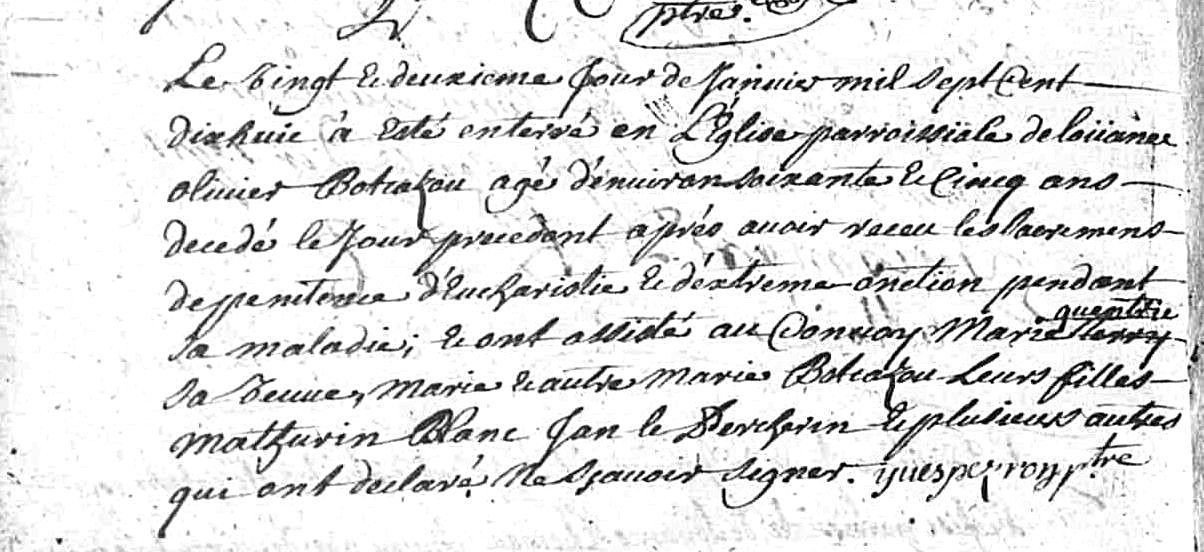 ptre
Le vingt & deuxieme Jour de Janvier mil Sept Cent
dixhuic à Esté enterré en L'Eglise parroissiale de loüanec
olivier Botcazou agé d'environ soixante & Cinq ans
decedé le Jour precedant aprés avoir receu les Sacremens
de penitence d'Eucharistie & d'extreme onction pendant
sa maladie; & ont assisté au Convoy Marie quentric terry
sa veuve, Marie & autre Marie Botcazou Leurs filles
Mathurin Blanc Jan le Percherin & plusieurs autres
qui ont declaré Ne Sçavoir signer. yves perrog ptre